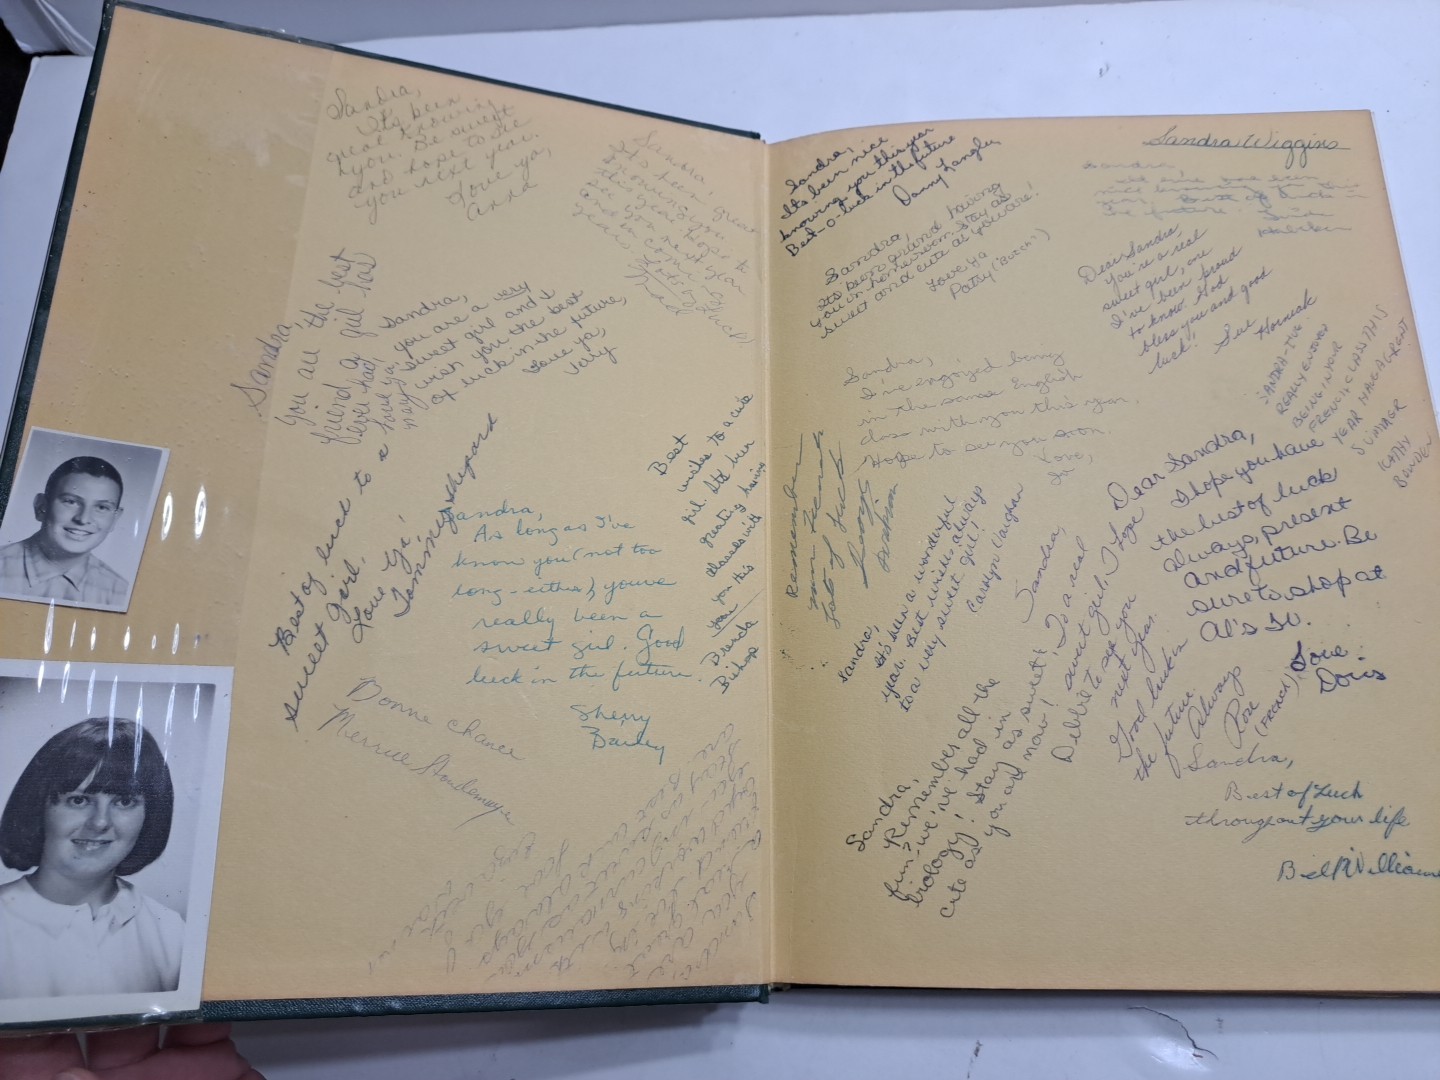 Sandra,
It's been
great knowing
you. Be sweet
and hope to see
you next year.
Love ya,
Anna
Sandra,
It's been great
knowing you
this year. Hope to
see you next year
and in coming
years. Lots of luck,
Sandra,
You are the best
friend a girl has
ever had!
Love ya,
Sandra,
you are a very
sweet girl and I
wish you the best
of luck in the future,
Love ya,
Judy
Best of luck to a
sweet girl,
Love Ya!
Tommy Shepard
Sandra,
As long as I've
know you (not too
long-either) you've
really been a
sweet girl. Good
luck in the future.
Sherry
Bailey
Best
wishes to a cute
girl. It's been
great having
classes with
you this
year
Brenda
Bishop
Donne chance
Merrill
Sandra,
It's been nice
knowing you this year
Best-o-luck in the future
Danny Langley
Sandra,
It's been grand having
you in homeroom. Stay as
sweet and cute as you are!
Love Ya
Patsy ("Butch")
Sandra Wiggins
Sandra,
nice knowing you this
year. Best of luck in
the future.
Dear Sandra,
You're a real
sweet girl, one
I've been proud
to know. God
bless you and good
luck!!
Sue Horneck
SANDRA - I'VE
REALLY ENJOYED
BEING IN YOUR
FRENCH CLASS THIS
YEAR. HAVE A GREAT
SUMMER
KATHY
BOWDEN
Sandra,
I've enjoyed being
in the same English
class with you this year.
Hope to see you soon.
Love,
Jo
Remember
your friend
Lots of luck
always
Sandra,
It's been a wonderful
year. Best wishes always
to a very sweet girl!
Carolyn Vaughan
Dear Sandra,
I hope you have
the best of luck
always, present
and future. Be
sure to shop at
Al's IV.
Love
Doris
Sandra,
To a real
sweet girl, I hope
to see you
next year.
Good luck in
the future.
Always
Rose
(FRENCH)
Sandra,
Remember all the
fun - we've had in
biology! Stay as sweet &
cute as you are now!
Debbie
Sandra,
Best of Luck
throughout your life
Bill Williams